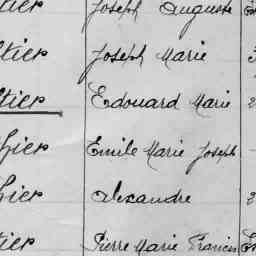 tier Joseph Auguste
ltier Joseph Marie
ltier Edouard Marie 2
hier Emile Marie Joseph
hier Alexandre
tier Pierre Marie Francis